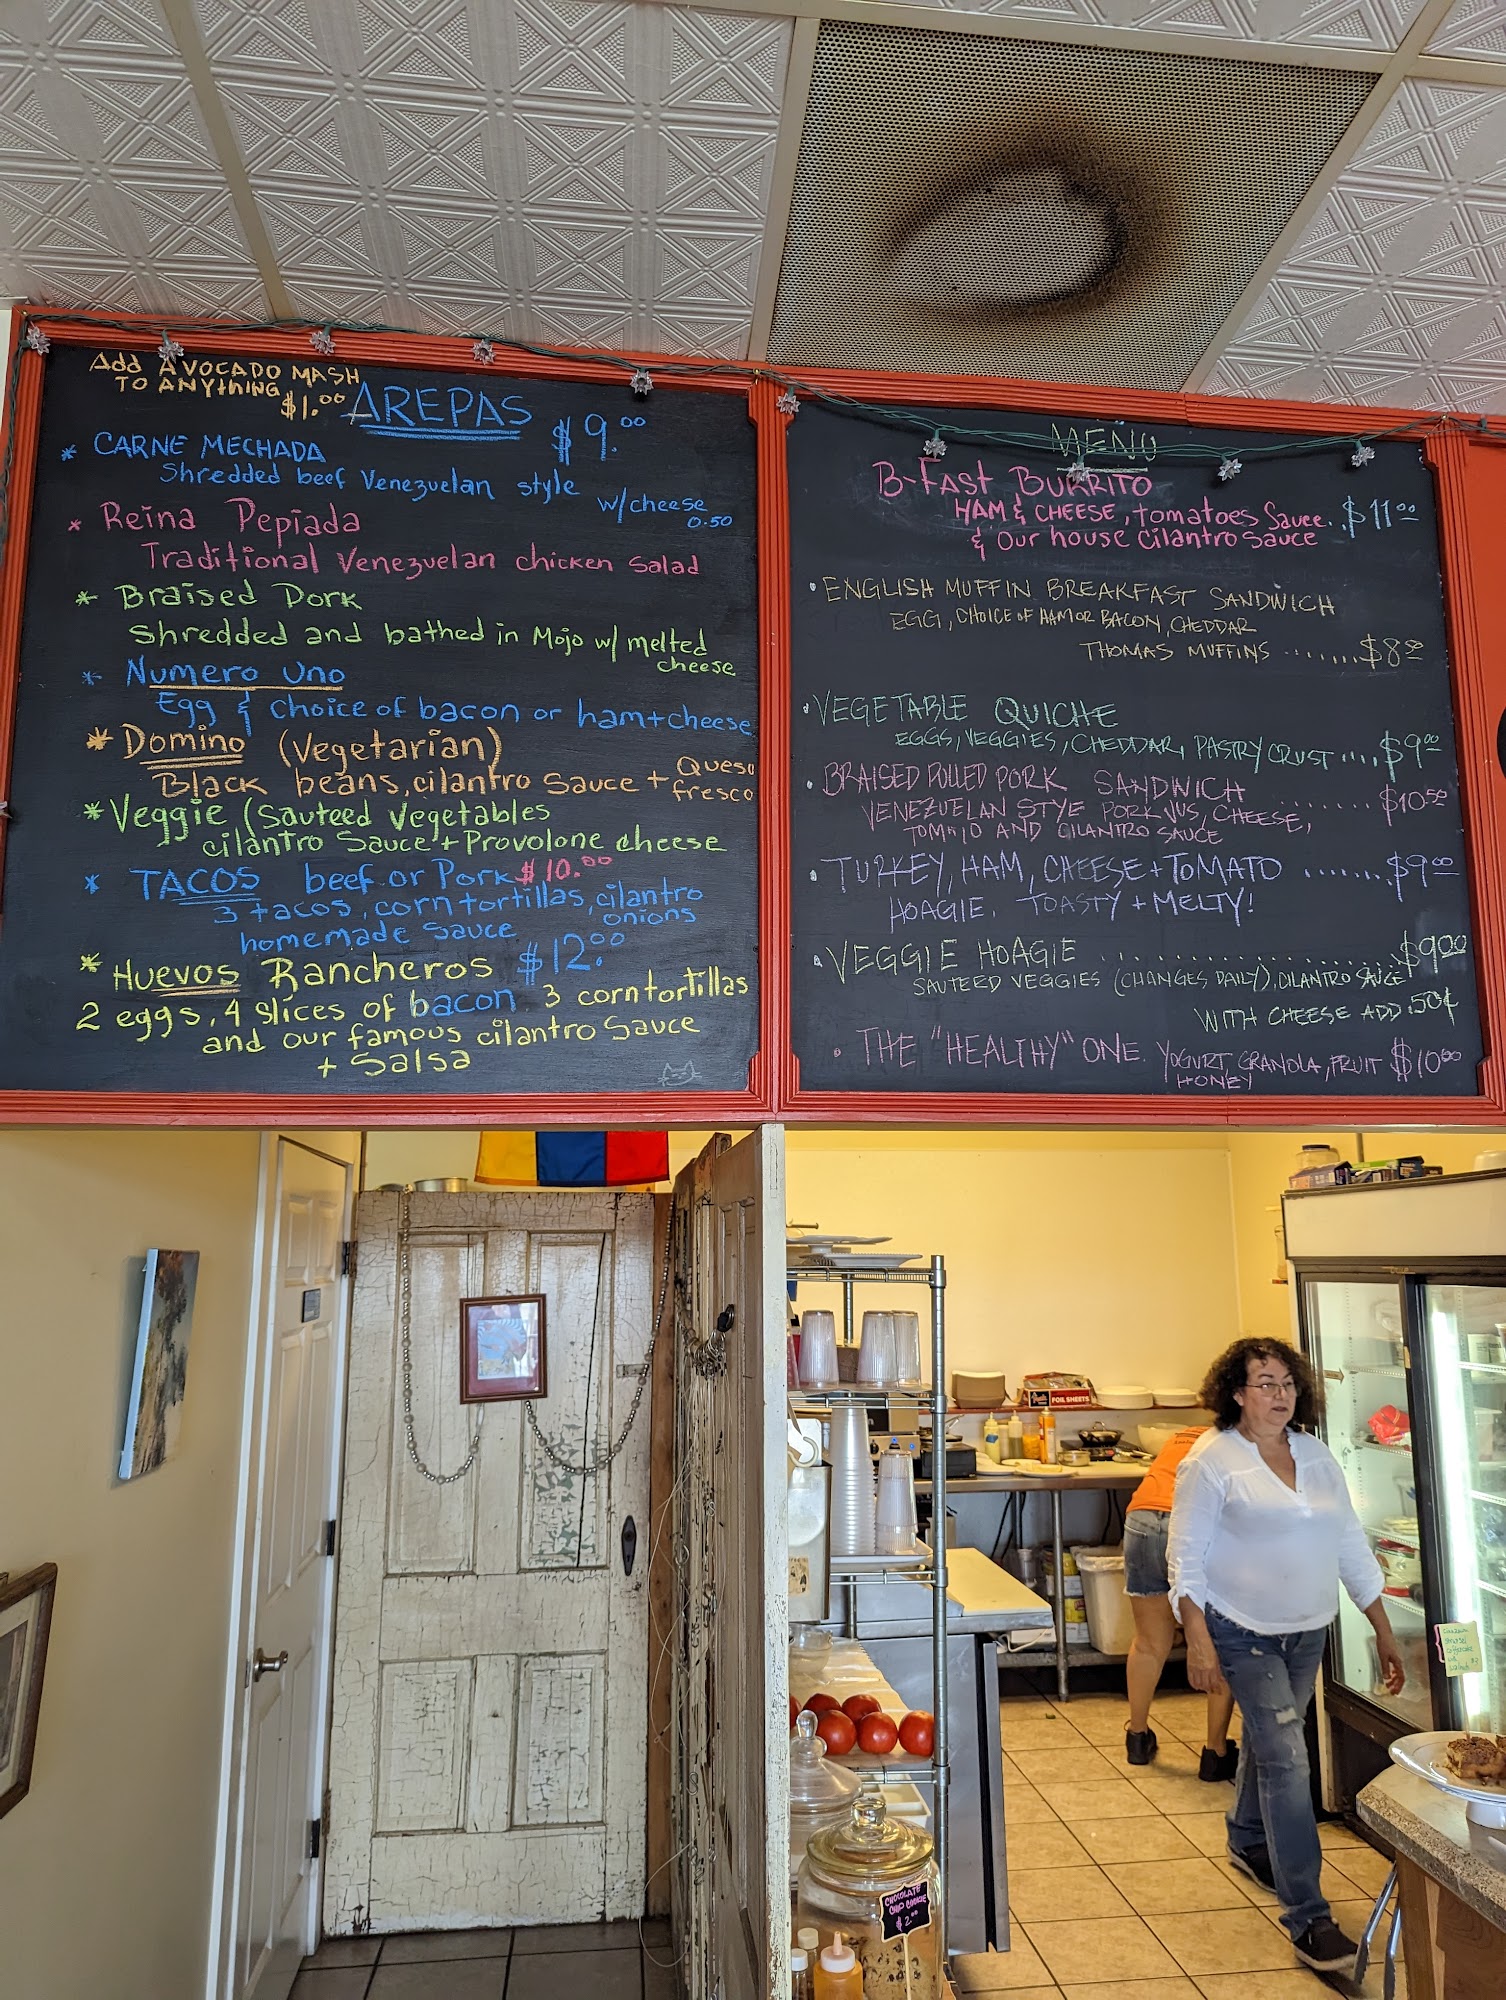 Add AVOCADO MASH
TO ANYTHING
$1.00
AREPAS
$9.00
* CARNE MECHADA
Shredded beef Venezuelan style
w/cheese
0.50
* Reina Pepiada
Traditional Venezuelan chicken Salad
* Braised Pork
Shredded and bathed in Mojo w/ melted
cheese
* Numero Uno
Egg & choice of bacon or ham+cheese
* Domino (Vegetarian)
Black beans, cilantro Sauce + Queso
fresco
* Veggie (Sauteed Vegetables
cilantro Sauce + Provolone cheese
* TACOS beef or Pork $10.00
3 tacos, corn tortillas, cilantro
onions
homemade Sauce
* Huevos Rancheros $12.00
2 eggs, 4 slices of bacon 3 corn tortillas
and our famous cilantro Sauce
+ Salsa
MENU
B-FAST BURRITO
HAM & CHEESE, tomatoes Sauce.. $11.00
& Our house Cilantro Sauce
• ENGLISH MUFFIN BREAKFAST SANDWICH
EGG, CHOICE OF HAM OR BACON, CHEDDAR
THOMAS MUFFINS ....... $8.50
• VEGETABLE QUICHE
EGGS, VEGGIES, CHEDDAR, PASTRY CRUST .... $9.00
• BRAISED PULLED PORK SANDWICH ........ $10.50
VENEZUELAN STYE PORK JUS, CHEESE,
TOMATO AND CILANTRO SAUCE
• TURKEY, HAM, CHEESE + TOMATO ........ $9.00
HOAGIE. TOASTY + MELTY!
• VEGGIE HOAGIE .................. $9.00
SAUTEED VEGGIES (CHANGES DAILY), CILANTRO SAUCE
WITH CHEESE ADD .50¢
• THE "HEALTHY" ONE. YOGURT, GRANOLA, FRUIT $10.00
HONEY
FOIL SHEETS
CHOCOLATE
CHIP COOKIE
$2.00